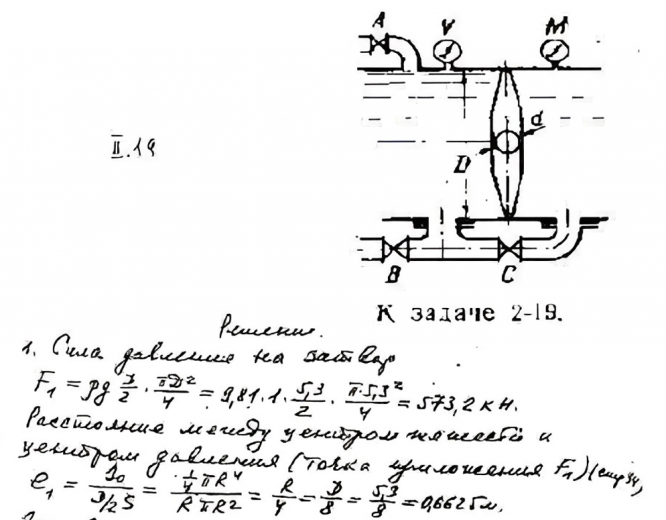 A V M
II.19
d
D
B C
К задаче 2-19.
Решение.
1. Сила давление на затвор
F₁ = ρg D/2 · πD²/4 = 9,81·1· 5,3/2 · π·5,3²/4 = 573,2 кН.
Расстояние между центром тяжести и
центром давления (точка приложения F₁) (стр 34,
e₁ = J₀/(D/2 S) = (1/4 πR⁴)/(R πR²) = R/4 = D/8 = 5,3/8 = 0,6625 м.